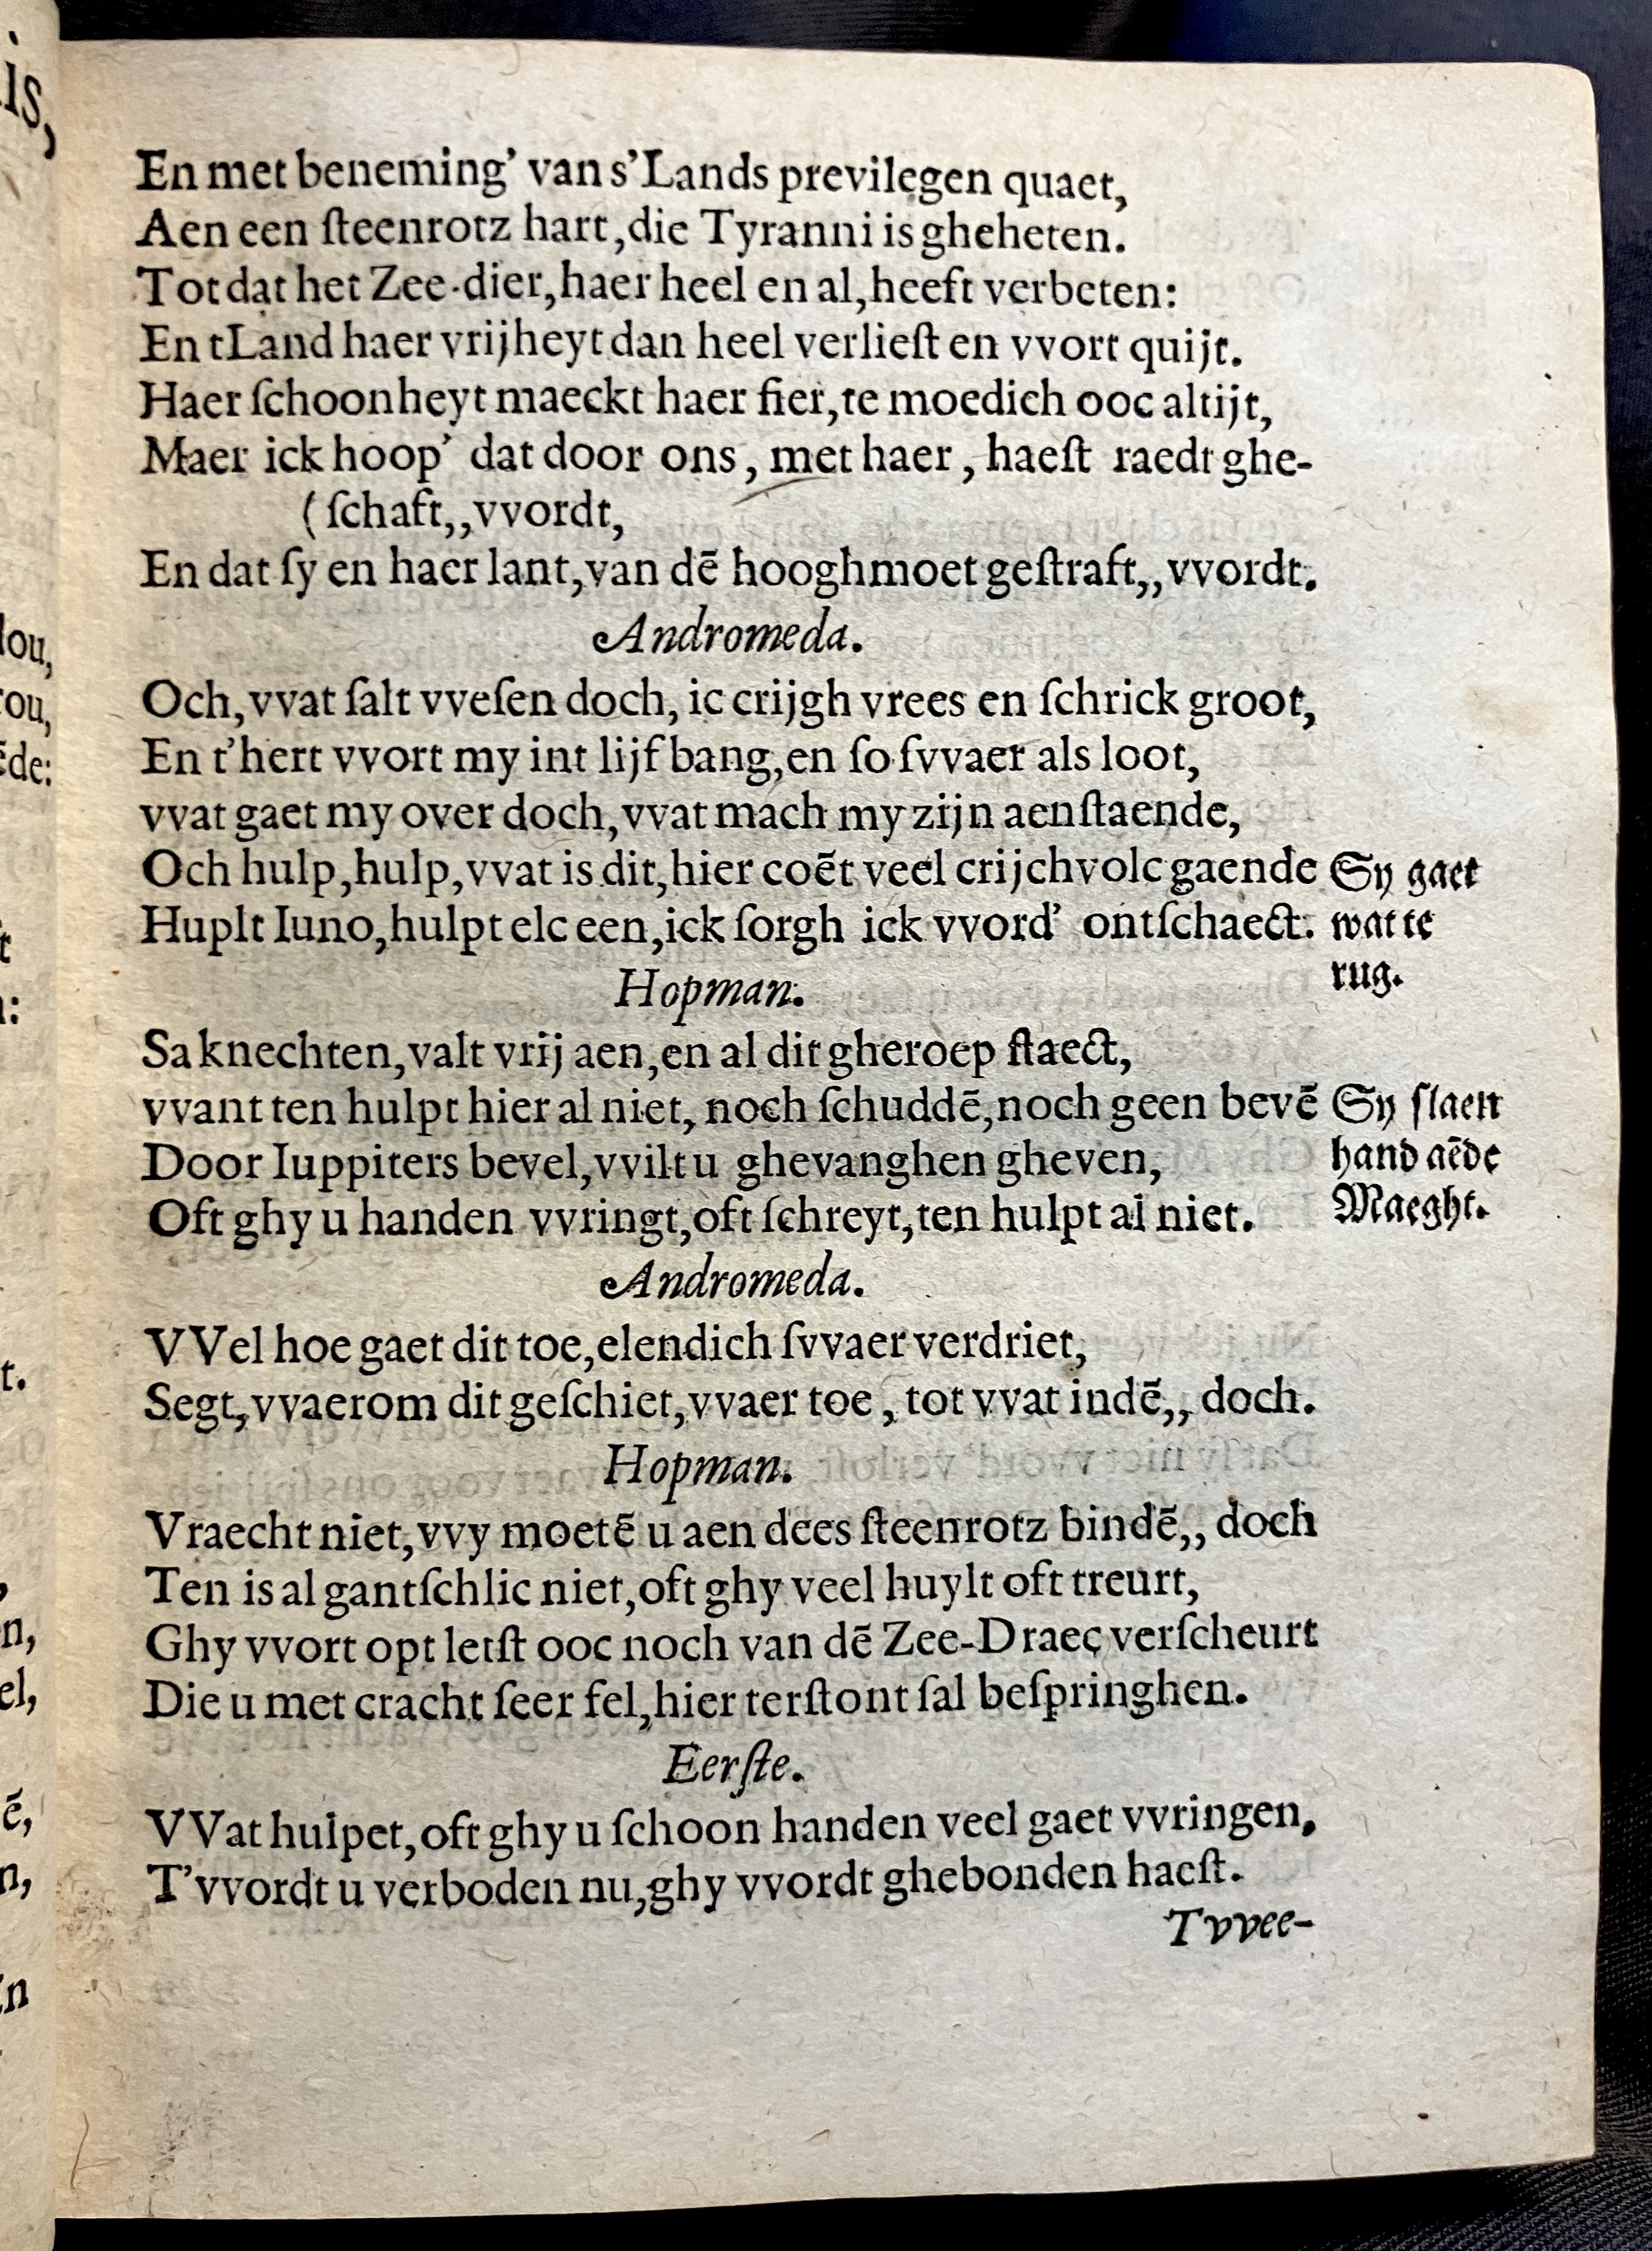 En met beneming’ van s’Lands previlegen quaet,
Aen een ſteenrotz hart, die Tyranni is gheheten.
Tot dat het Zee-dier, haer heel en al, heeft verbeten:
En tLand haer vrijheyt dan heel verlieſt en vvort quijt.
Haer ſchoonheyt maeckt haer fier, te moedich ooc altijt,
Maer ick hoop’ dat door ons, met haer, haeſt raedt ghe-
(ſchaft,, vvordt,
En dat ſy en haer lant, van dē hooghmoet geſtraft,, vvordt.
Andromeda.
Och, vvat ſalt vveſen doch, ic crijgh vrees en ſchrick groot,
En t’hert vvort my int lijf bang, en ſo ſvvaer als loot,
vvat gaet my over doch, vvat mach my zijn aenſtaende,
Och hulp, hulp, vvat is dit, hier coēt veel crijchvolc gaende
Sy gaet
Huplt Iuno, hulpt elc een, ick ſorgh ick vvord’ ontſchaect:
wat te
rug.
Hopman.
Sa knechten, valt vrij aen, en al dit gheroep ſtaect,
vvant ten hulpt hier al niet, noch ſchuddē, noch geen bevē
Sy ſlaen
Door Iuppiters bevel, vvilt u ghevanghen gheven,
hand aēde
Oft ghy u handen vvringt, oft ſchreyt, ten hulpt al niet.
Maeght.
Andromeda.
VVel hoe gaet dit toe, elendich ſvvaer verdriet,
Segt, vvaerom dit geſchiet, vvaer toe, tot vvat indē,, doch.
Hopman.
Vraecht niet, vvy moetē u aen dees ſteenrotz bindē,, doch
Ten is al gantſchlic niet, oft ghy veel huylt oft treurt,
Ghy vvort opt letſt ooc noch van dē Zee-Draec verſcheurt
Die u met cracht ſeer fel, hier terſtont ſal beſpringhen.
Eerſte.
VVat hulpet, oft ghy u ſchoon handen veel gaet vvringen,
T’vvordt u verboden nu, ghy vvordt ghebonden haeſt.
Tvvee-